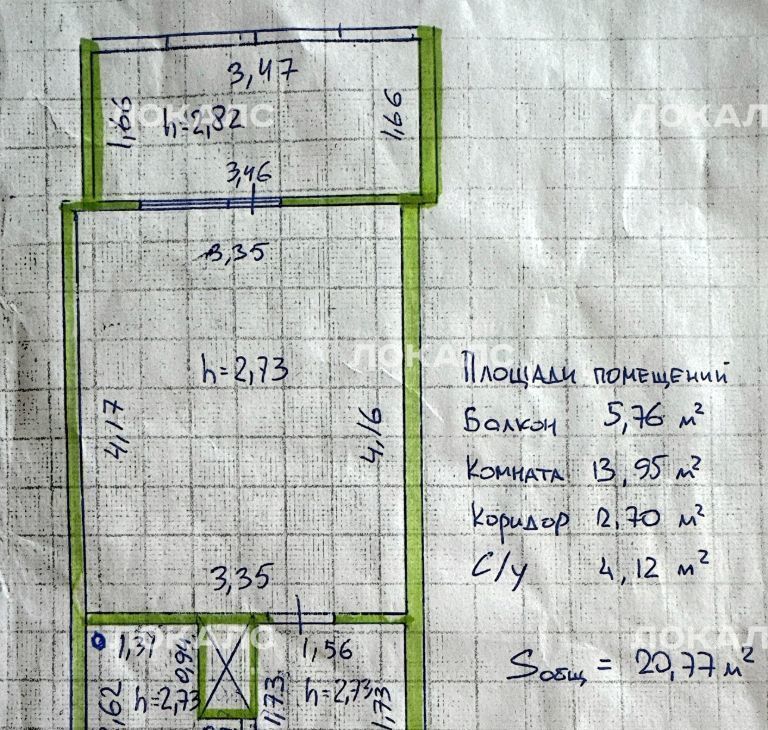 3,47
1,66
h=2,82
1,66
3,46
3,35
h=2,73
4,17
4,16
3,35
Площади помещений
Балкон 5,76 м²
Комната 13,95 м²
Коридор 2,70 м²
С/у 4,12 м²
Sобщ = 20,77 м²
0,94
1,56
h=2,73
1,73
h=2,73
1,73
ЛОКАЛС
ЛОКАЛ
ЛОКАЛС
ЛОКАЛС
ЛОКАЛ